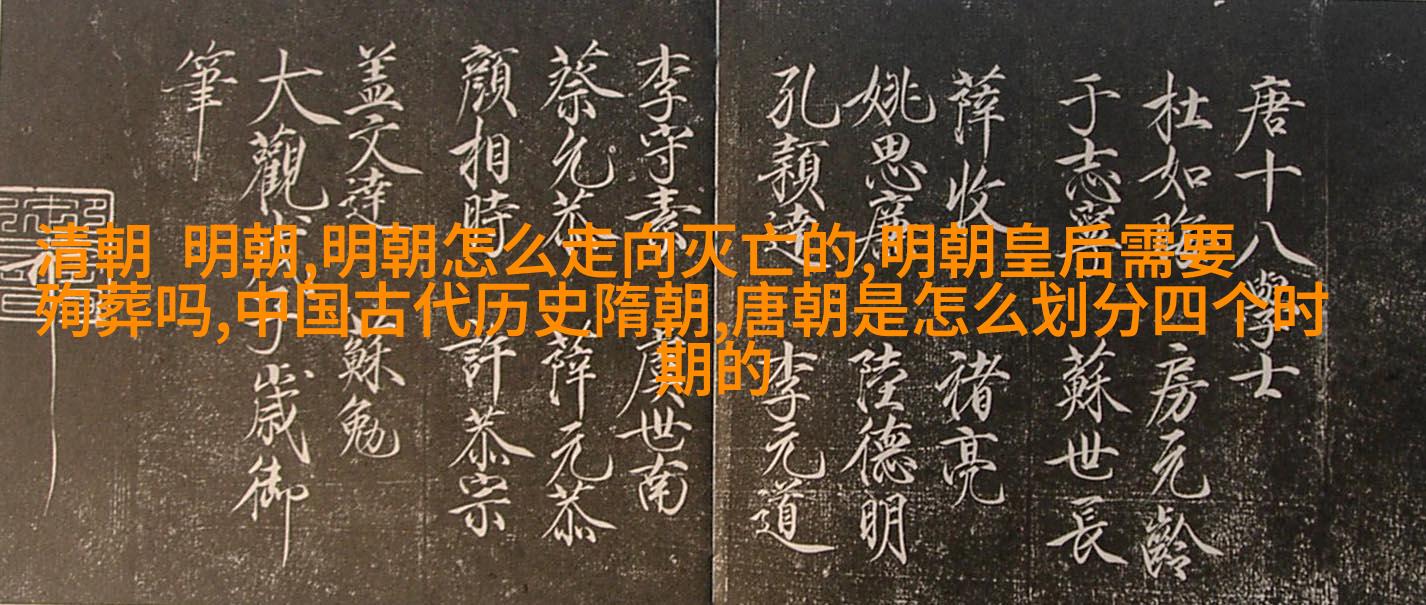 清朝 明朝,明朝怎么走向灭亡的,明朝皇后需要
殉葬吗,中国古代历史隋朝,唐朝是怎么划分四个时
期的
唐十八學士
杜如晦 房元齡
于志寧 蘇世長
薛收 褚亮
姚思廉 陸德明
孔穎達 李元道
李守素 虞世南
蔡允恭 薛元恭
顏相時 許恭宗
盖文達 蘇勉
大觀戊子歲御
筆